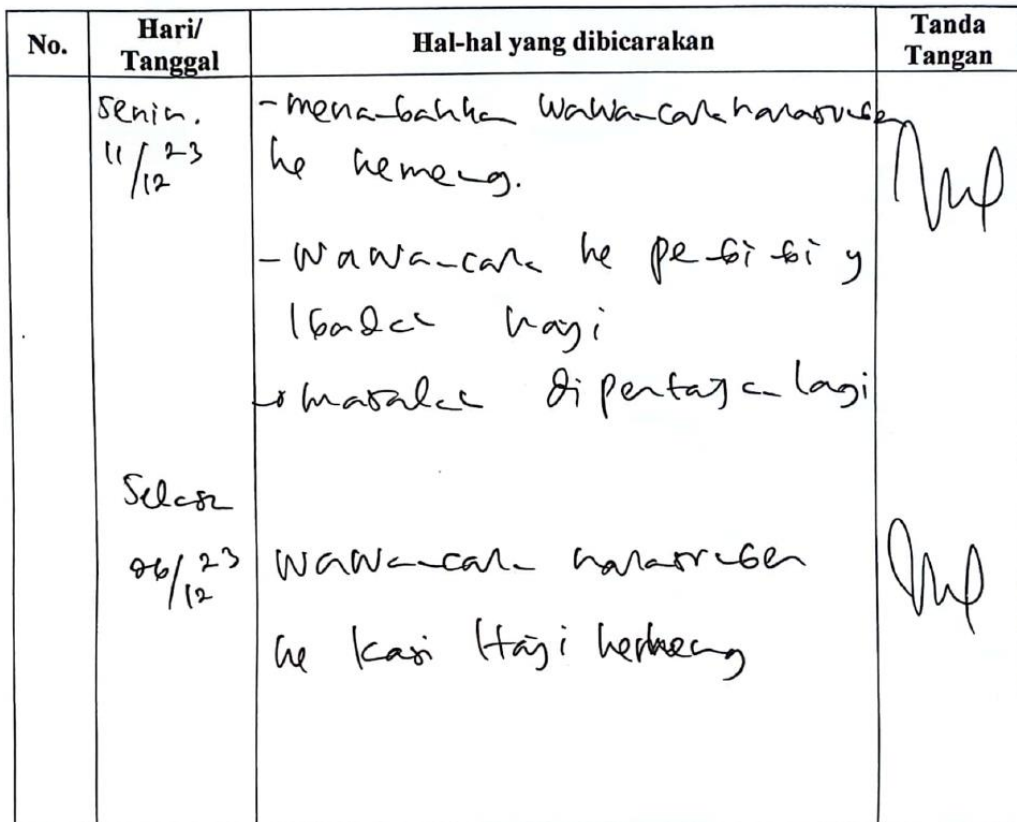 No.
Hari/
Tanggal
Hal-hal yang dibicarakan
Tanda
Tangan
Senin.
11/12 23
- menambahkan wawancara narasumber
ke kemenag.
- Wawancara ke pembimbing
Ibadah haji
→ masalah dipertajam lagi
Selasa
26/12 23
wawancara narasumber
ke Kasi Haji kemenag